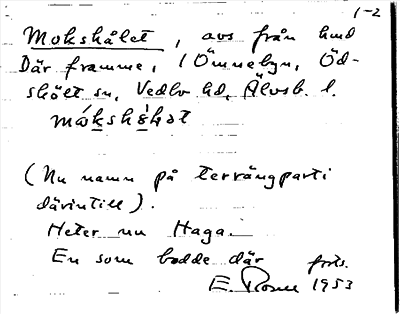 1-2
Mokshålet, avs från hmd
Där framme, i Ömnebyn, Öd-
skölt sn, Vedbo hd, Älvsb. l.
(Nu namn på terrängparti
därintill).
Heter nu Haga.
En som bodde där forts.
E. 1953